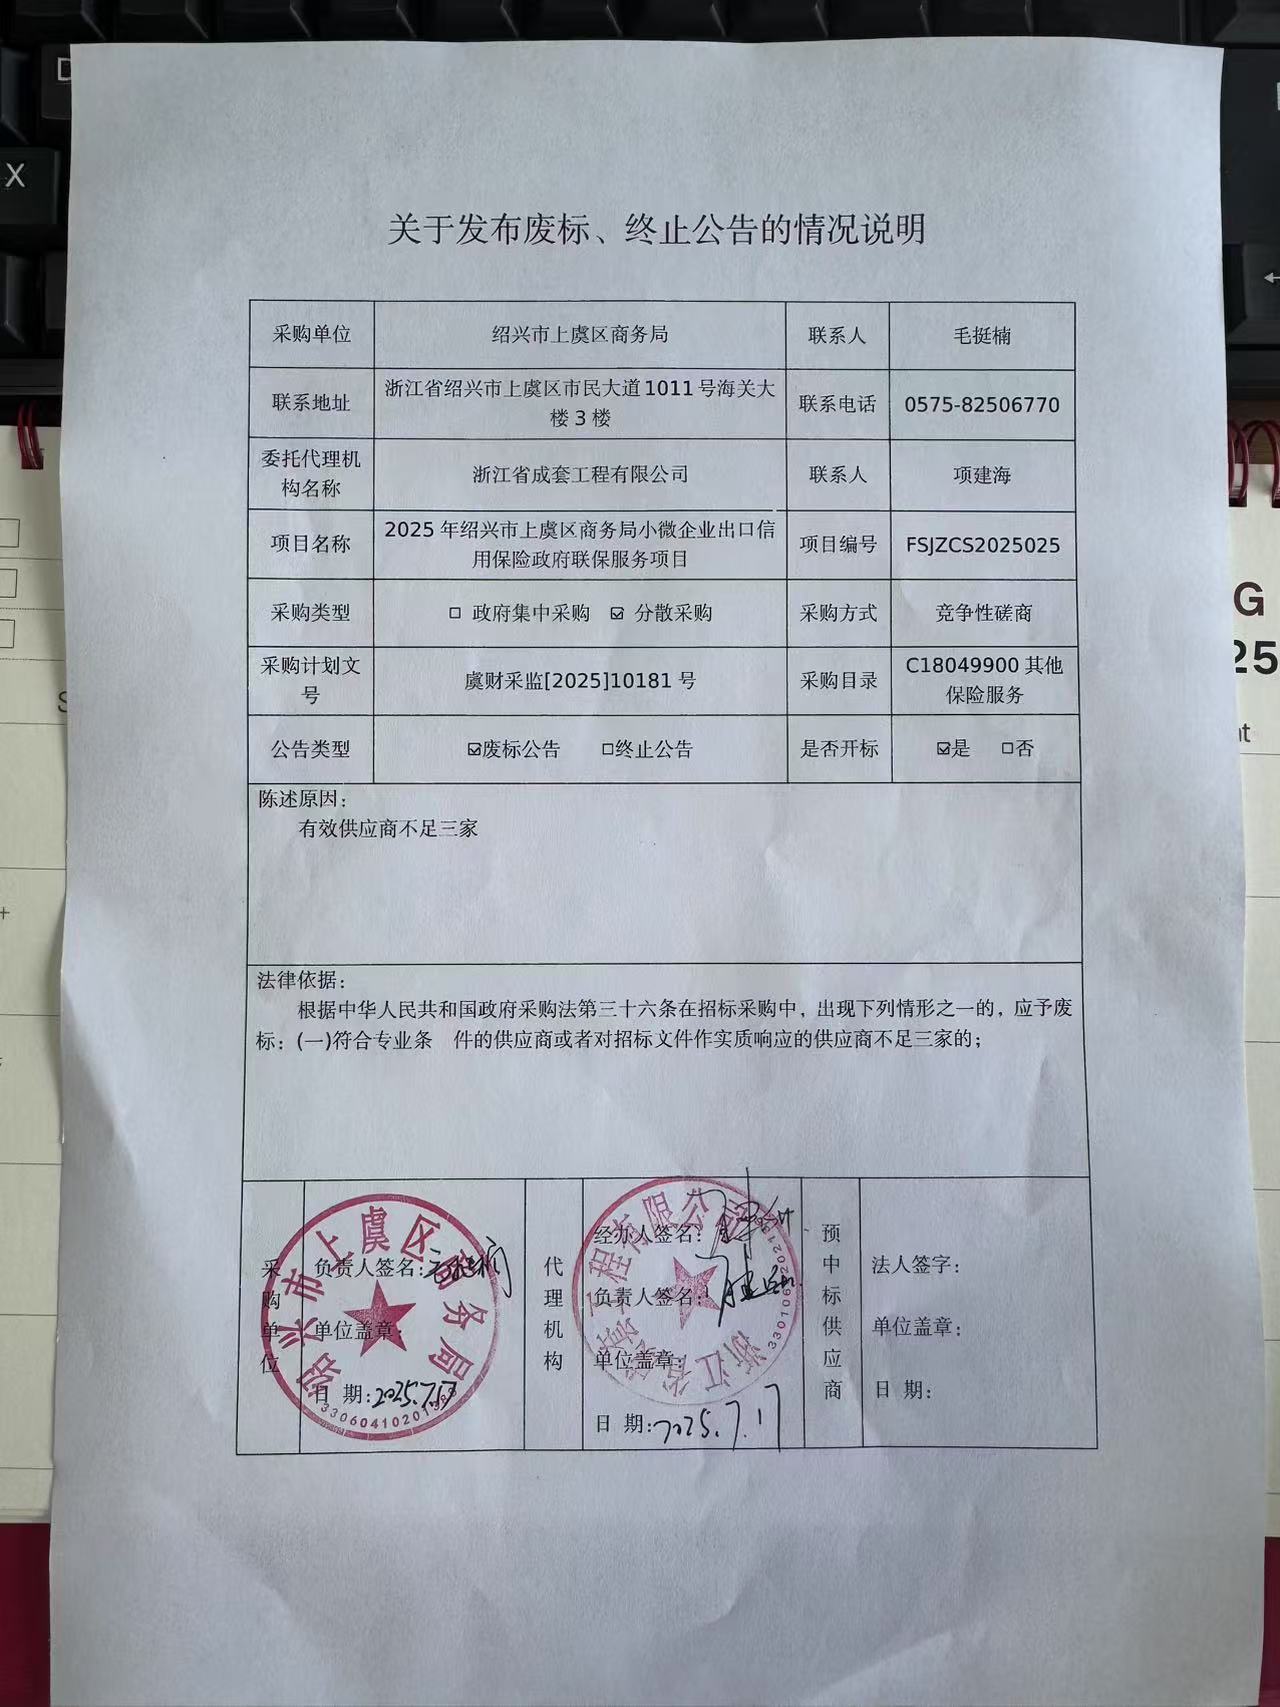 关于发布废标、终止公告的情况说明
采购单位 绍兴市上虞区商务局 联系人 毛挺楠
联系地址 浙江省绍兴市上虞区市民大道1011号海关大
楼3楼 联系电话 0575-82506770
委托代理机
构名称 浙江省成套工程有限公司 联系人 项建海
项目名称 2025年绍兴市上虞区商务局小微企业出口信
用保险政府联保服务项目 项目编号 FSJZCS2025025
采购类型 □ 政府集中采购 ☑ 分散采购 采购方式 竞争性磋商
采购计划文
号 虞财采监[2025]10181号 采购目录 C18049900其他
保险服务
公告类型 ☑废标公告 □终止公告 是否开标 ☑是 □否
陈述原因：
有效供应商不足三家
法律依据：
根据中华人民共和国政府采购法第三十六条在招标采购中，出现下列情形之一的，应予废
标：(一)符合专业条 件的供应商或者对招标文件作实质响应的供应商不足三家的；
采购单位
负责人签名：
单位盖章：
日 期：2025.7.17
绍兴市上虞区商务局
代理机构
经办人签名：
负责人签名：
单位盖章：
日 期：2025.7.17
浙江省成套工程有限公司
预中标供应商
法人签字：
单位盖章：
日 期：
X
G
25